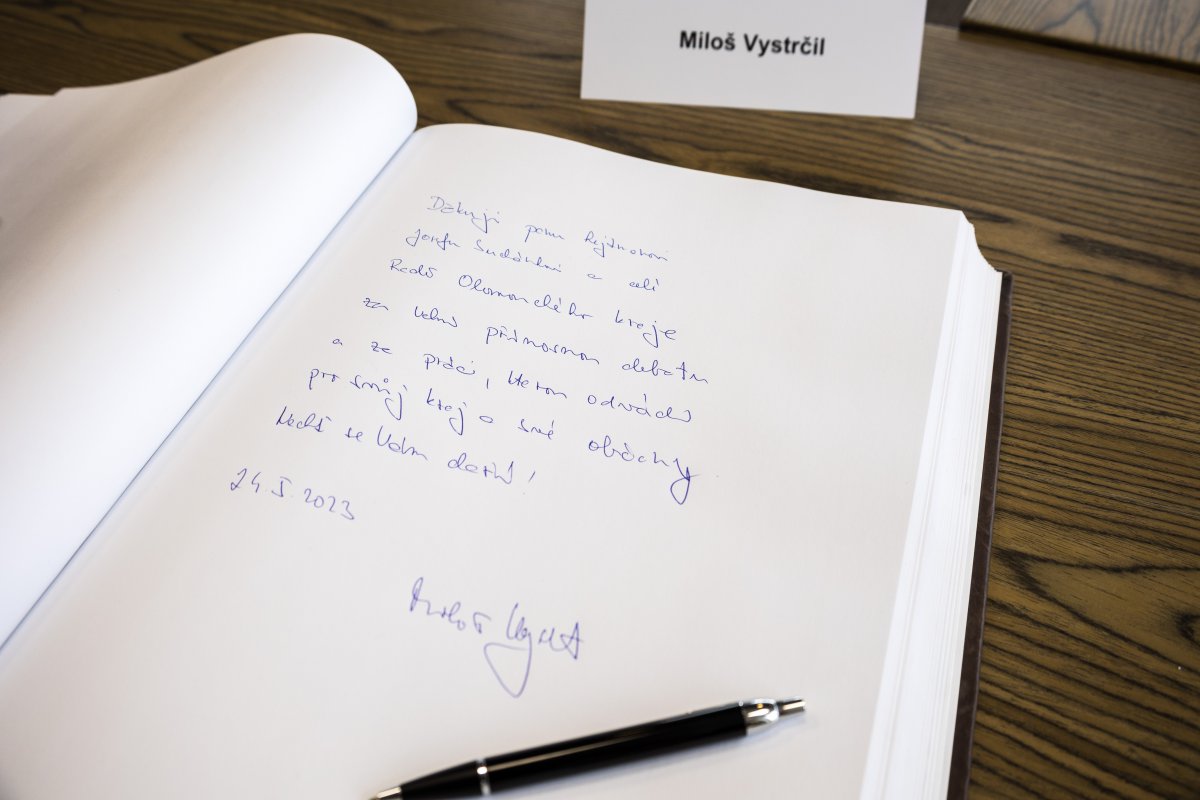 Miloš Vystrčil
Děkuji panu hejtmanovi
Josefu Suchánkovi a celé
Radě Olomouckého kraje
za velmi přínosnou debatu
a za práci, kterou odvádí
pro svůj kraj a své občany
Nechť se Vám daří!
24. 5. 2023
Miloš Vyst